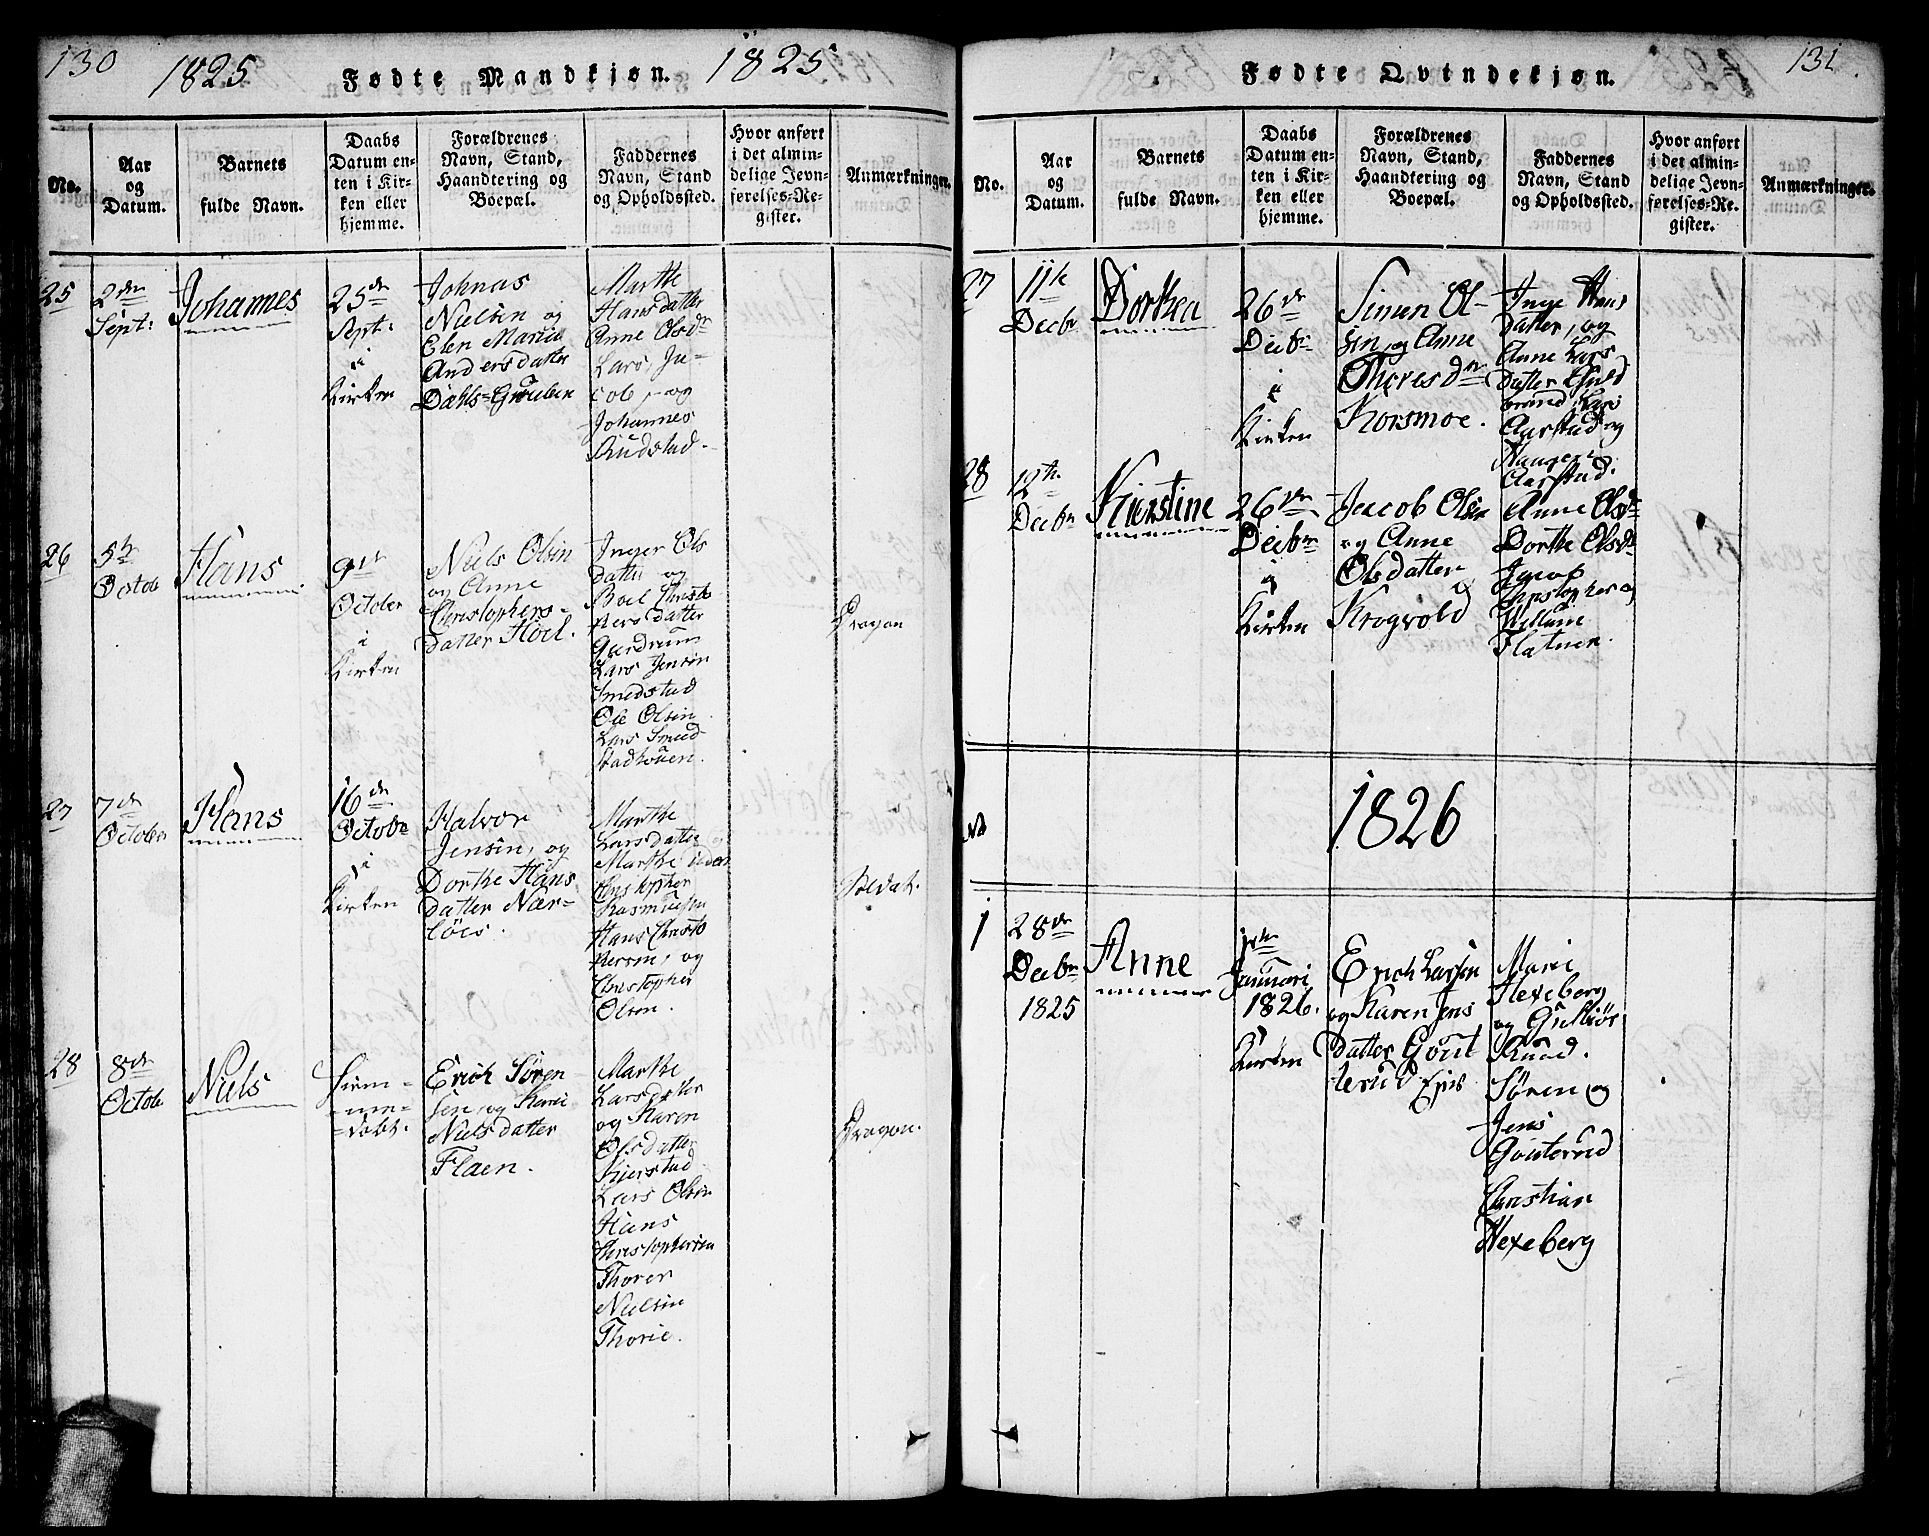 130
1825
Fødte Mandkjøn.
1825
No.
Aar
og
Datum.
Barnets
fulde Navn.
Daabs
Datum en-
ten i Kir-
ken eller
hjemme.
Forældrenes
Navn, Stand,
Haandtering og
Boepæl.
Faddernes
Navn, Stand
og Opholdssted.
Hvor anført
i det almin-
delige Jevn-
førelses-Re-
gister.
Anmærkninger.
25
2den
Sept:
Johannes
25de
Sept:
i
Kirken
Johnas
Nielsen og
Elen Maria
Andersdatter
Dahls=Gruben
Marthe
Hansdatter
Anne Olsdr
Lars, Ja-
cob, og
Johannes
Rudstad.
26
5te
Octob
Hans
9de
October
i
Kirken
Niels Olsen
og Anne
Christophers-
datter Hoel.
Inger Ols
datter og
Boel Christo
phersdatter
Gurdrum
Lars Jensen
Smedstad
Ole Olsen
Lars Smed-
stadhouen.
Dragon
27
7de
October
Hans
16de
Octobr
i
Kirken
Halvor
Jensen, og
Dorthe Hans
datter Nær-
löes.
Marthe
Larsdatter
Marthe
Christopher
Rasmusen
Hans Christo
phersen, og
Christopher
Olsen.
Soldat.
28
8de
Octob
Niels
Hiem-
me=
=döbt.
Erich Sören-
sen, og Kari
Nielsdatter
Flaen.
Marthe
Larsdatter
og Karen
Olsdatter
Kjerstad
Lars Olsen
Hans
Christophersen
Thorer
Nielsen
Thorie.
Dragon.
131.
Fødte Qvindekjøn.
No.
Aar
og
Datum.
Barnets
fulde Navn.
Daabs
Datum en-
ten i Kir-
ken eller
hjemme.
Forældrenes
Navn, Stand,
Haandtering og
Boepæl.
Faddernes
Navn, Stand
og Opholdssted.
Hvor anført
i det almin-
delige Jevn-
førelses-Re-
gister.
Anmærkninger.
27
11te
Decbr
Dorthea
26de
Decbr
i
Kirken
Simen Ol-
sen, og Anne
Thoresdr
Korsmoe.
Inge Hans
datter, og
Anne Lars
datter
Aarstad og
Aarstad.
28
12te
Decbr
Kierstine
26de
Decbr
i
Kirken
Jacob Olsen
og Anne
Olsdatter
Krogvold
Anne Olsdr
Dorthe Olsdr
Jacob
Christopher og
Willum
Flatner.
No
1826
1
28de
Decbr
1825
Anne
1te
Januari
1826.
Kirken
Erich Larsen
og Karen Jens
datter Gout
erud Ejer
Marie
Hexeberg
og Gulbiör
Ruud.
Sören og
Jens
Gouterud
Christian
Hexeberg